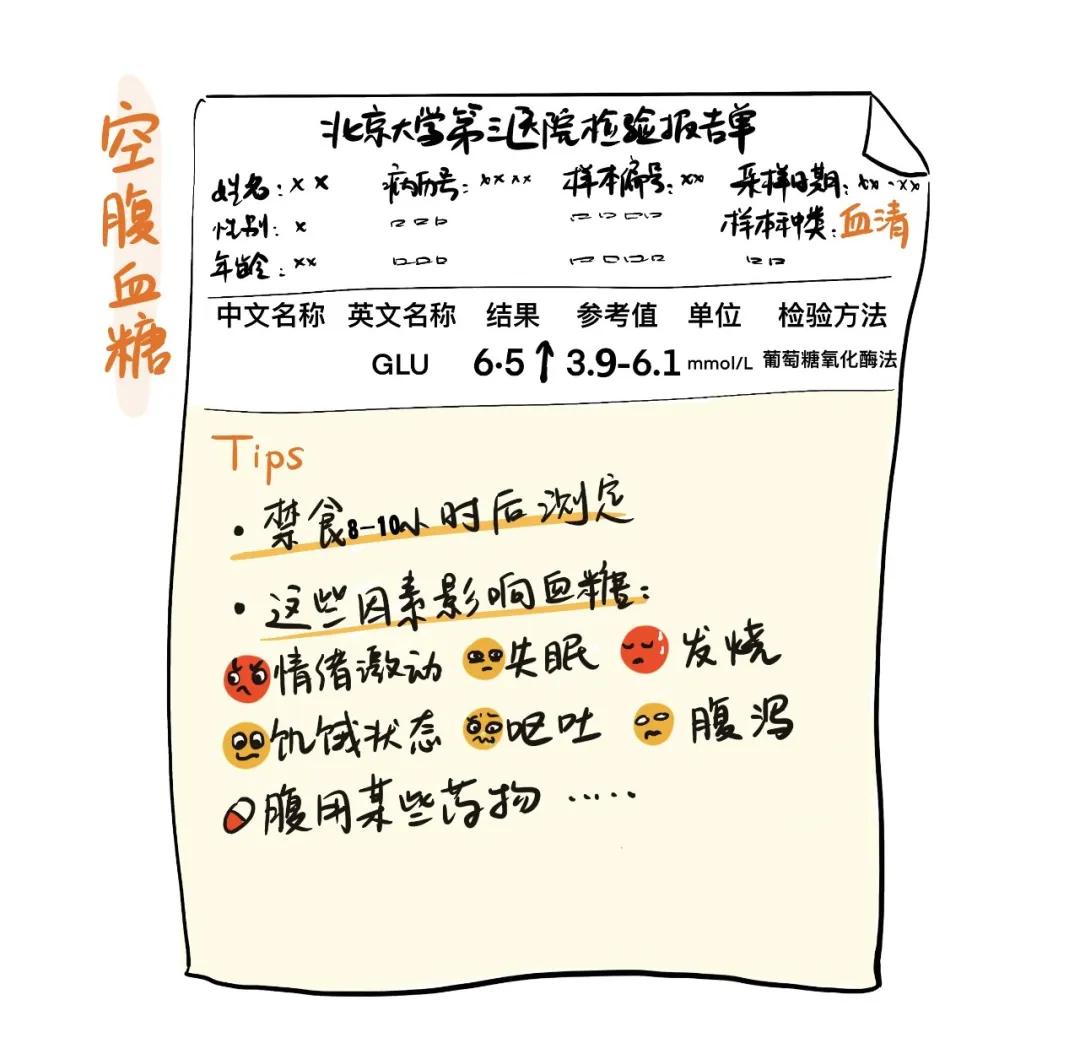 空腹血糖
北京大学第三医院检验报告单
姓名:×× 病历号:×××× 样本编号:×× 采样日期:××-××
性别:× 样本种类:血清
年龄:××
中文名称 英文名称 结果 参考值 单位 检验方法
GLU 6·5↑ 3.9-6.1 mmol/L 葡萄糖氧化酶法
Tips
·禁食8-10小时后测定
·这些因素影响血糖:
情绪激动 失眠 发烧
饥饿状态 呕吐 腹泻
腹用某些药物 ·····